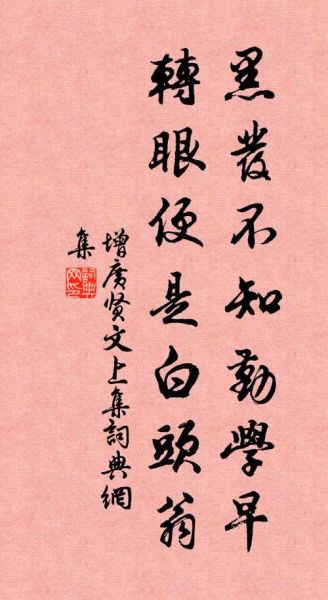 黑發不知勤學早
轉眼便是白頭翁
增廣贤文上集詞典網
集
詞典
网印